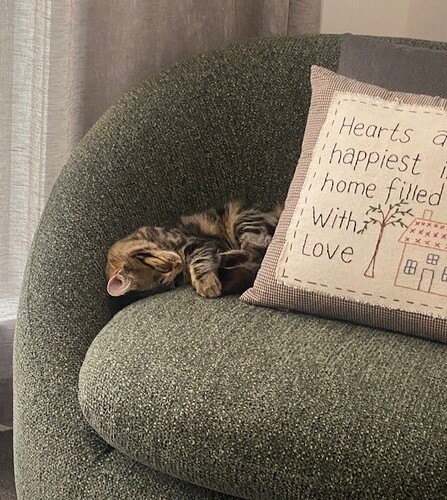 Hearts
happiest
home filled
With
Love